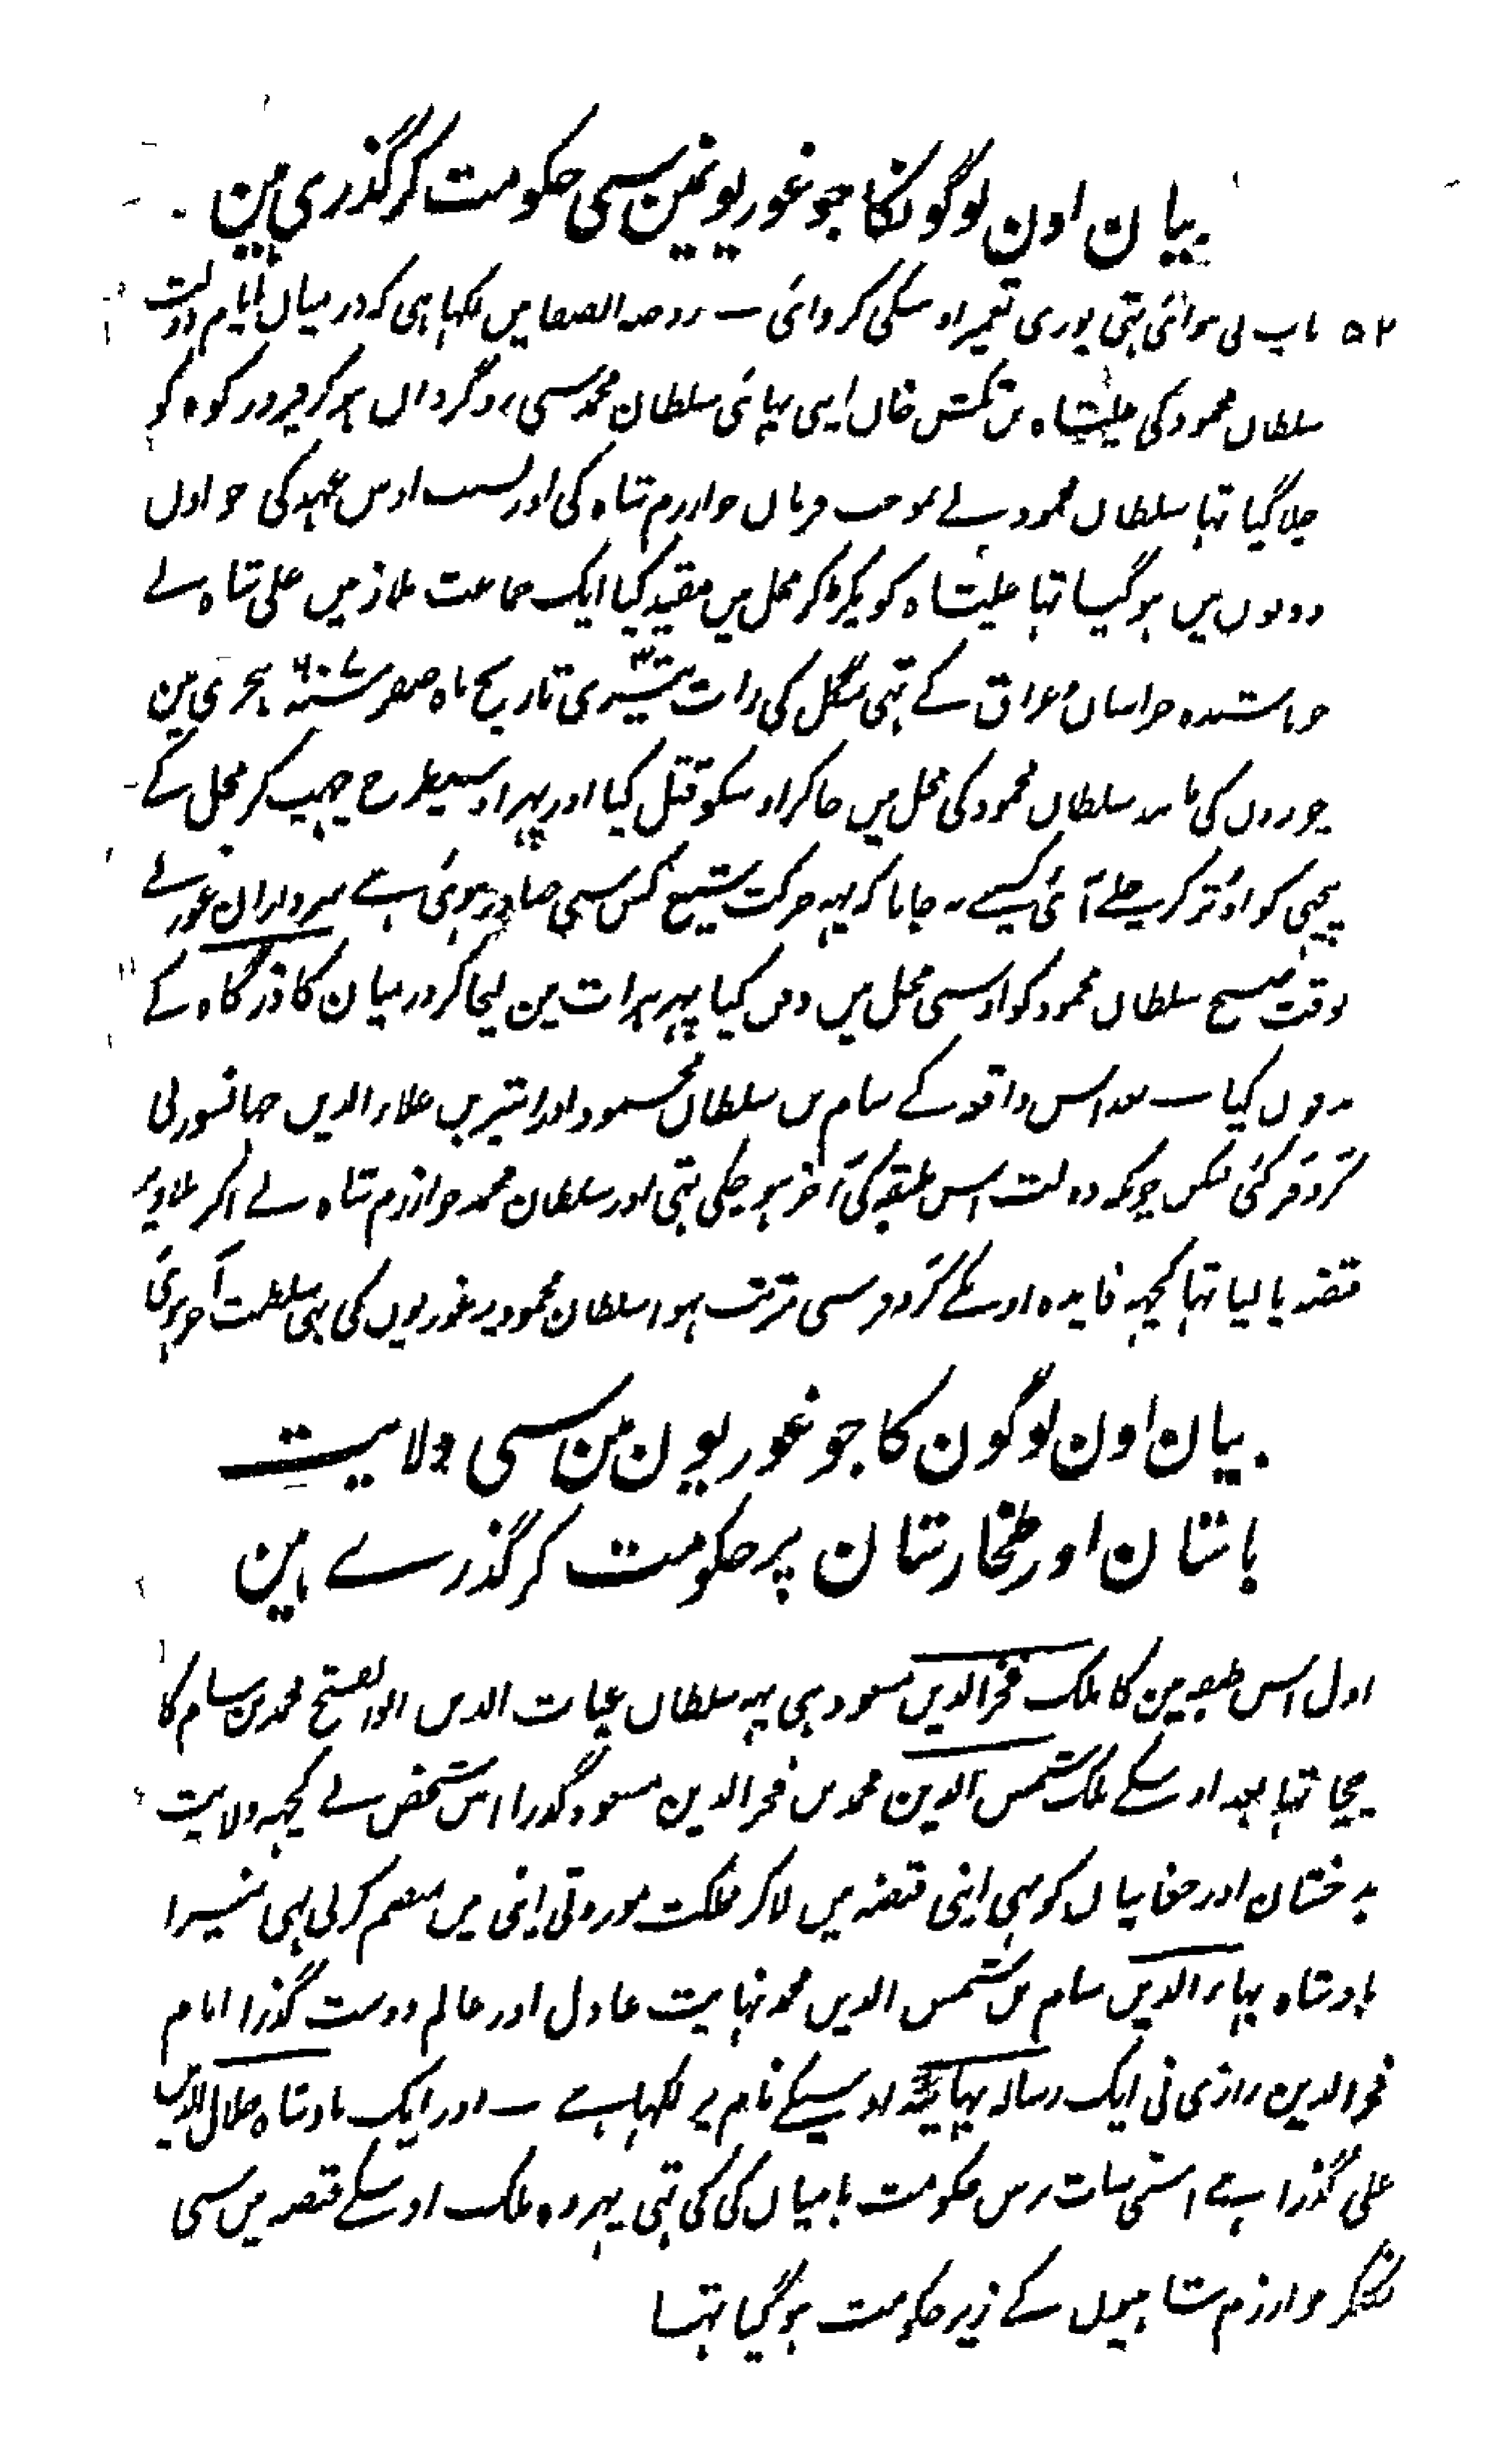 بیان اون لوگونکا جو غوریونمین سی حکومت کر گذری ہین
۵۲ باپ نی بنوائی تہی پوری تعمیر اوسکی کروائی ـ روضہ الصفا میں لکہا ہی کہ درمیاں ایام دولت
سلطاں محمود کی علیشاہ بن تکش خاں اپنی بہائی سلطان محمد سی روگرداں ہو کر فیروز کوہ کو
چلا گیا تہا سلطاں محمود نے بموجب فرماں خوارزم شاہ کی اور بسبب اوس عہد کی جو اول
دونوں میں ہو گیا تہا علیشاہ کو پکڑ کر محل میں مقید کیا ایک جماعت ملازمیں علی شاہ نے
جو باشندہ خراساں و عراق کے تہی منگل کی رات تیسری تاریخ ماہ صفر سنہ ۶۰۷ ہجری مین
چوروں کی مانند سلطاں محمود کی محل میں جا کر اوسکو قتل کیا اور پہر اوسیطرح چہپ کر محل کے
پیچہی کو اوتر کر چلے آئی کسیے نہ جانا کہ یہہ حرکت شنیع کس سی صادر ہوئی ہے سرداران غور نے
بوقت صبح سلطاں محمود کو اوسی محل میں دفن کیا پہر ہرات مین لیجا کر درمیان کاذرگاہ کے
مدفوں کیا ـ بعد اس واقعہ کے سام بن سلطاں محمود اور اتسز بن علاء الدیں جہانسوز نی
کروفر کئی لیکن چونکہ دولت اس طبقہ کی آخر ہو چکی تہی اور سلطان محمد خوارزم شاہ نے اکثر بلاد پر
قبضہ پا لیا تہا کچہہ فایدہ اونکے کروفر سی مترتب نہوا سلطان محمود پر غوریوں کی بہی سلطنت آخر ہوئی
بیان اون لوگون کا جو غوریون مین سی ولایت
باشان اور طخارستان پر حکومت کر گذرے ہین
اول اس طبقہ مین کا ملک فخرالدیں مسعود ہی یہہ سلطاں غیاث الدین ابوالفتح محمد بن سام کا
چچا تہا بعد اوسکے ملک شمس الدین محمد بن فخرالدین مسعود گذرا اس شخص نے کچہہ ولایت
بدخشان اور چغانیاں کو بہی اپنی قبضہ میں لا کر مملکت موروثی اپنی میں منضم کر لی تہی تیسرا
بادشاہ بہاءالدیں سام بن شمس الدیں محمد نہایت عادل اور عالم دوست گذرا امام
فخرالدین رازی نی ایک رسالہ بہائیہ اوسیکے نام پر لکہا ہے ـ اور ایک بادشاہ جلال الدین
علی گذرا ہے اسنی سات برس حکومت بامیاں کی کی تہی پہر وہ ملک اوسکے قبضہ میں سی
نکلکر خوارزم شاہیوں کے زیر حکومت ہو گیا تہا